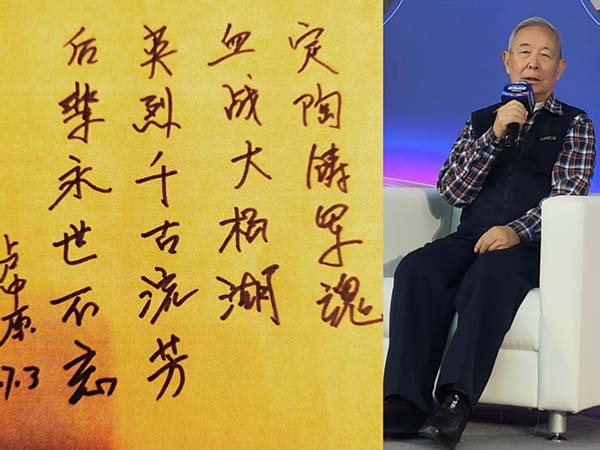 定陶铸军魂
血战大杨湖
英烈千古流芳
后辈永世不忘
卢中康